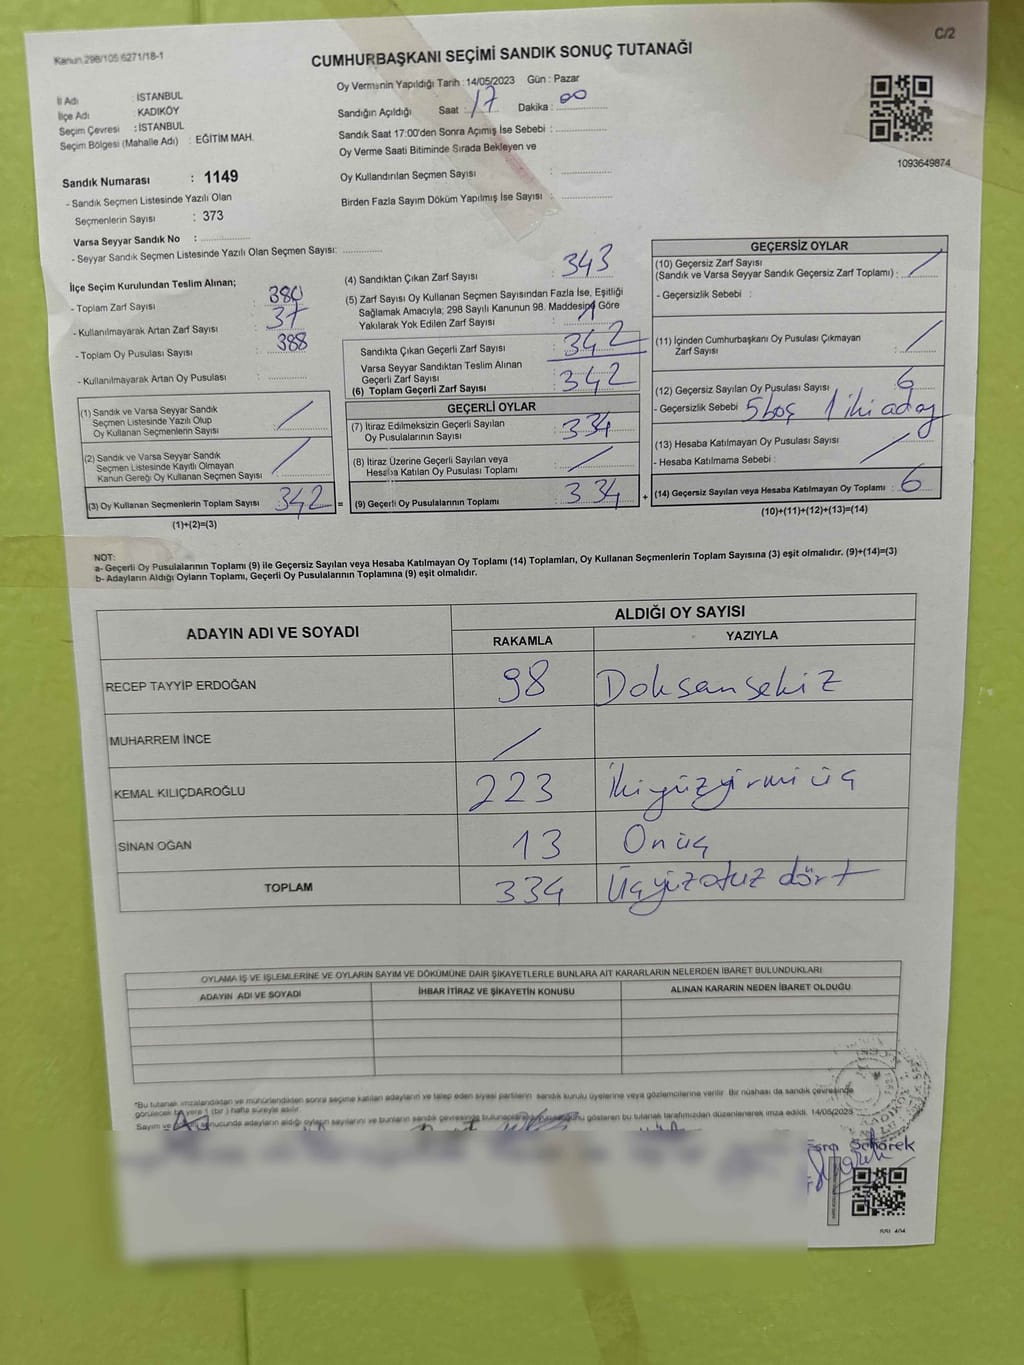 Kanun.298/105.6271/18-1
C/2
CUMHURBAŞKANI SEÇİMİ SANDIK SONUÇ TUTANAĞI
İl Adı : İSTANBUL
İlçe Adı : KADIKÖY
Seçim Çevresi : İSTANBUL
Seçim Bölgesi (Mahalle Adı) : EĞİTİM MAH.
Sandık Numarası : 1149
- Sandık Seçmen Listesinde Yazılı Olan
Seçmenlerin Sayısı : 373
Varsa Seyyar Sandık No :
- Seyyar Sandık Seçmen Listesinde Yazılı Olan Seçmen Sayısı:
Oy Vermenin Yapıldığı Tarih : 14/05/2023 Gün : Pazar
Sandığın Açıldığı Saat : 17 Dakika : 00
Sandık Saat 17:00'den Sonra Açımış İse Sebebi :
Oy Verme Saati Bitiminde Sırada Bekleyen ve
Oy Kullandırılan Seçmen Sayısı :
Birden Fazla Sayım Döküm Yapılmış İse Sayısı :
1093649874
İlçe Seçim Kurulundan Teslim Alınan;
- Toplam Zarf Sayısı : 380
- Kullanılmayarak Artan Zarf Sayısı : 37
- Toplam Oy Pusulası Sayısı : 388
- Kullanılmayarak Artan Oy Pusulası :
(1) Sandık ve Varsa Seyyar Sandık
Seçmen Listesinde Yazılı Olup
Oy Kullanan Seçmenlerin Sayısı : /
(2) Sandık ve Varsa Seyyar Sandık
Seçmen Listesinde Kayıtlı Olmayan
Kanun Gereği Oy Kullanan Seçmen Sayısı : /
(3) Oy Kullanan Seçmenlerin Toplam Sayısı : 342 =
(1)+(2)=(3)
(4) Sandıktan Çıkan Zarf Sayısı : 343
(5) Zarf Sayısı Oy Kullanan Seçmen Sayısından Fazla İse, Eşitliği
Sağlamak Amacıyla; 298 Sayılı Kanunun 98. Maddesine Göre
Yakılarak Yok Edilen Zarf Sayısı : 1
Sandıkta Çıkan Geçerli Zarf Sayısı : 342
Varsa Seyyar Sandıktan Teslim Alınan
Geçerli Zarf Sayısı
(6) Toplam Geçerli Zarf Sayısı : 342
GEÇERLİ OYLAR
(7) İtiraz Edilmeksizin Geçerli Sayılan
Oy Pusulalarının Sayısı : 334
(8) İtiraz Üzerine Geçerli Sayılan veya
Hesaba Katılan Oy Pusulası Toplamı : /
(9) Geçerli Oy Pusulalarının Toplamı : 334 +
GEÇERSİZ OYLAR
(10) Geçersiz Zarf Sayısı
(Sandık ve Varsa Seyyar Sandık Geçersiz Zarf Toplamı) : /
- Geçersizlik Sebebi :
(11) İçinden Cumhurbaşkanı Oy Pusulası Çıkmayan
Zarf Sayısı : /
(12) Geçersiz Sayılan Oy Pusulası Sayısı : 6
- Geçersizlik Sebebi : 5 boş 1 iki aday
(13) Hesaba Katılmayan Oy Pusulası Sayısı : /
- Hesaba Katılmama Sebebi :
(14) Geçersiz Sayılan veya Hesaba Katılmayan Oy Toplamı : 6
(10)+(11)+(12)+(13)=(14)
NOT:
a- Geçerli Oy Pusulalarının Toplamı (9) ile Geçersiz Sayılan veya Hesaba Katılmayan Oy Toplamı (14) Toplamları, Oy Kullanan Seçmenlerin Toplam Sayısına (3) eşit olmalıdır. (9)+(14)=(3)
b- Adayların Aldığı Oyların Toplamı, Geçerli Oy Pusulalarının Toplamına (9) eşit olmalıdır.
ADAYIN ADI VE SOYADI ALDIĞI OY SAYISI
RAKAMLA YAZIYLA
RECEP TAYYİP ERDOĞAN 98 Doksansekiz
MUHARREM İNCE /
KEMAL KILIÇDAROĞLU 223 İkiyüzyirmi üç
SİNAN OĞAN 13 Onüç
TOPLAM 334 Üçyüzotuz dört
OYLAMA İŞ VE İŞLEMLERİNE VE OYLARIN SAYIM VE DÖKÜMÜNE DAİR ŞİKAYETLERLE BUNLARA AİT KARARLARIN NELERDEN İBARET BULUNDUKLARI
ADAYIN ADI VE SOYADI İHBAR İTİRAZ VE ŞİKAYETİN KONUSU ALINAN KARARIN NEDEN İBARET OLDUĞU
*Bu tutanak imzalandıktan ve mühürlendikten sonra seçime katılan adayların ve talep eden siyasi partilerin sandık kurulu üyelerine veya gözlemcilerine verilir. Bir nüshası da sandık çevresinde
görülecek bir yere 1 (bir) hafta süreyle asılır.
Sayım ve sonucunda adayların aldığı oyların sayılarını ve bunların sandık çevresinde gösteren bu tutanak tarafımızdan düzenlenerek imza edildi. 14/05/2023